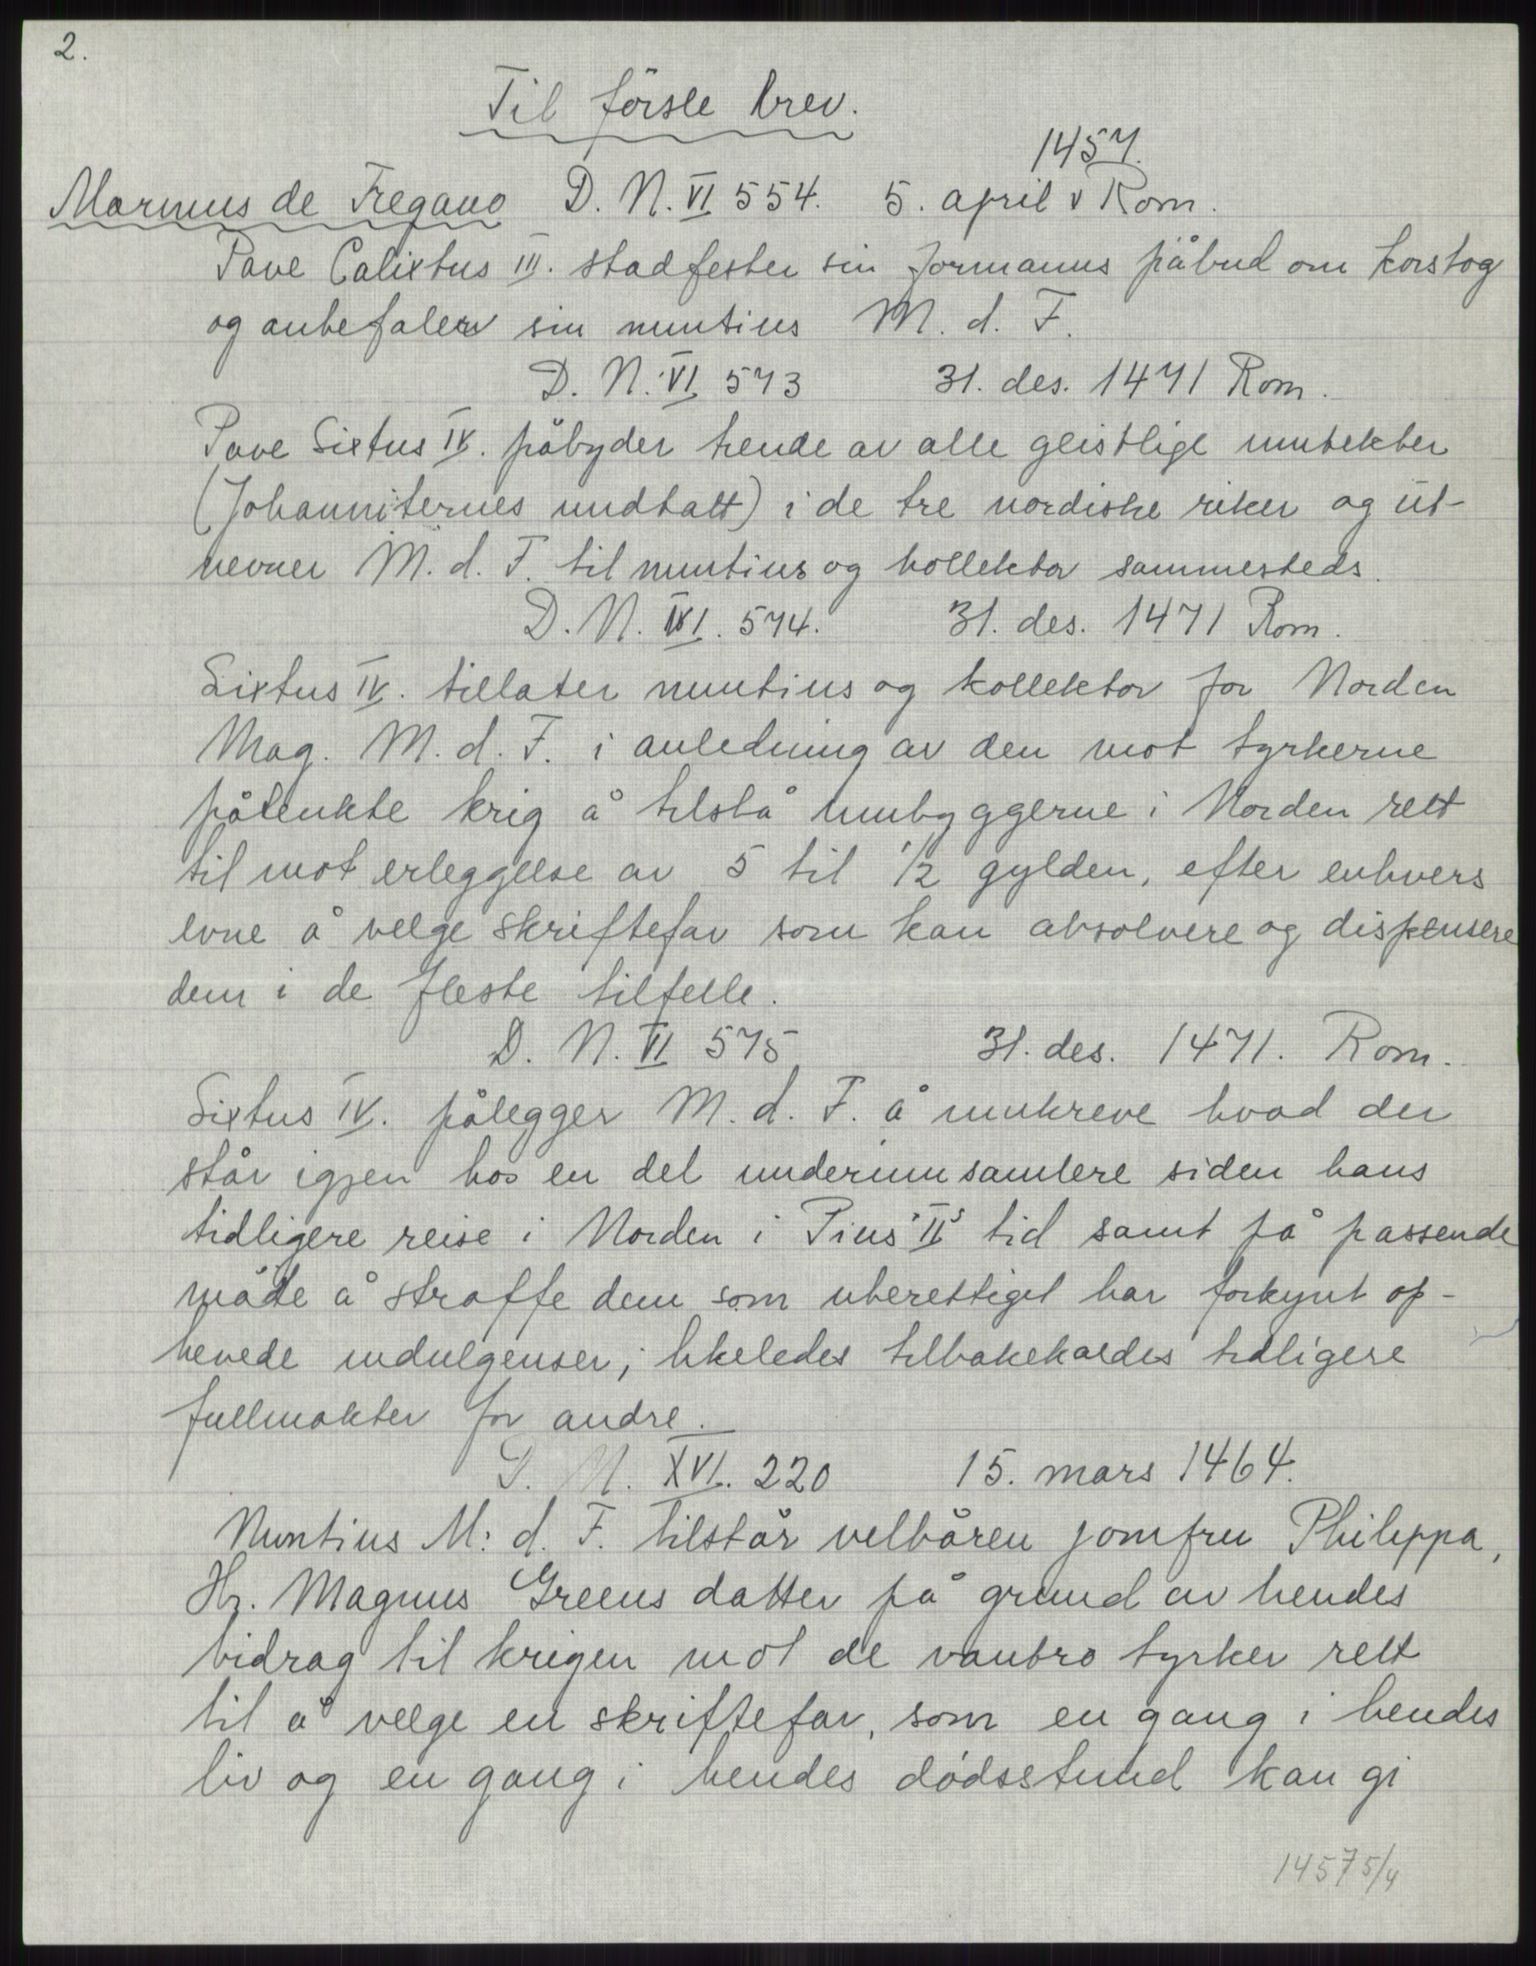 2.
Til förste brev.
1457.
Marinus de Fregano D. N. VI 554. 5. april v Rom.
Pave Calixtus III. stadfester sin formanns påbud om korstog
og anbefaler sin nuntius M. d. F.
D. N. VI 573 31. des. 1471 Rom.
Pave Sixtus IV. påbyder tiende av alle geistlige inntekter
(Johanniternes undtatt) i de tre nordiske riker og ut-
nevner M. d. F. til nuntius og kollektor sammesteds.
D. N. VI. 574. 31. des. 1471 Rom.
Sixtus IV. tillater nuntius og kollektor for Norden
Mag. M. d. F. i anledning av den mot tyrkerne
påtenkte krig å tilstå innbyggerne i Norden rett
til mot erleggelse av 5 til 1/2 gylden, efter enhvers
evne å velge skriftefar som kan absolvere og dispensere
dem i de fleste tilfelle.
D. N. VI 575 31. des. 1471. Rom.
Sixtus IV. pålegger M. d. F. å innkreve hvad der
står igjen hos en del underinnsamlere siden hans
tidligere reise i Norden i Pius' II's tid samt på passende
måte å straffe dem som uberettiget har forkynt op-
hevede indulgenser; likeledes tilbakekaldes tidligere
fullmakter for andre.
D. N. XVI. 220 15. mars 1464.
Nuntius M. d. F. tilstår velbåren jomfru Philippa,
Hr. Magnus Greens datter på grund av hendes
bidrag til krigen mot de vantro tyrker rett
til å velge en skriftefar, som en gang i hendes
liv og en gang i hendes dødsstund kan gi
1457 5/4